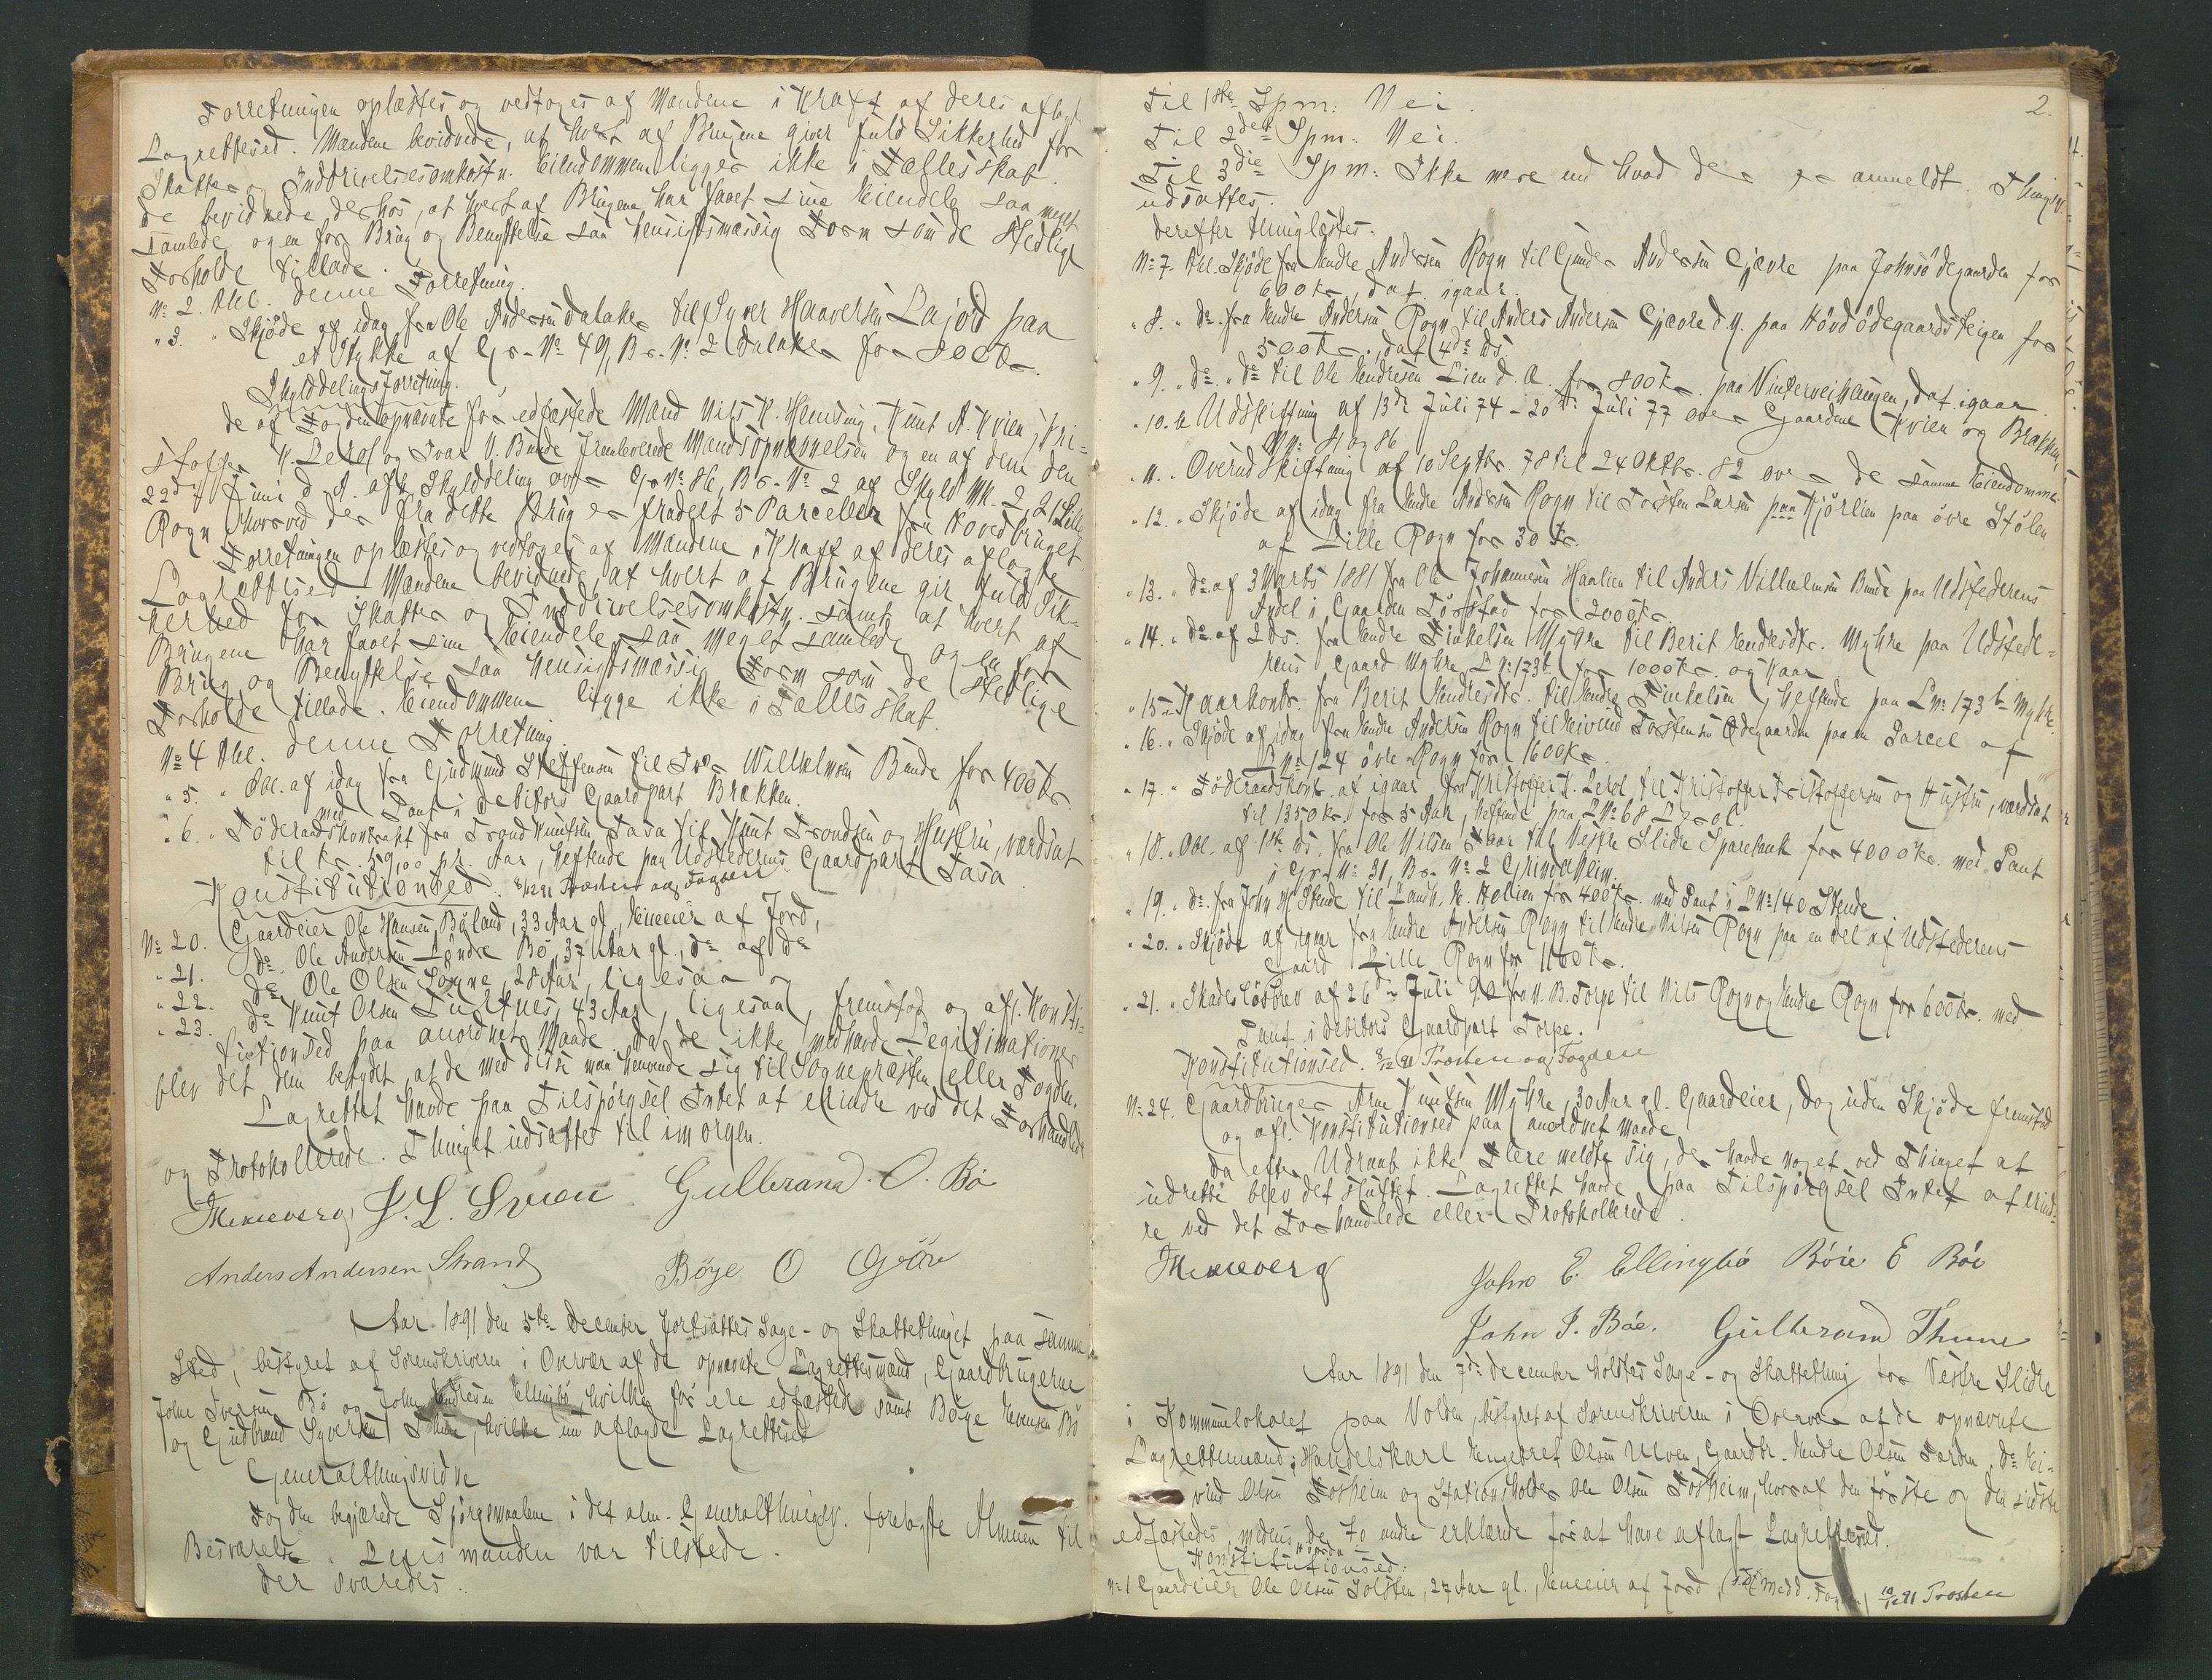 Forretningen oplæstes og vedtoges af Mændene i Kraft af deres aflagte
Lagrettesed. Mændene bevidnede, at hvert af Brugene giver fuld Sikkerhed for
Skatter og Inddrivelsesomkostn. Eiendommene ligger ikke i Fællesskab.
De bevidnede derhos, at hvert af Brugene har faaet sine Eiendele saa meget
samlede og en for Brug og Benyttelse saa hensigtsmæssig Form som de stedlige
Forholde tillade.
No 2. Thl. denne Forretning.
" 3. " Skjøde af idag fra Ole Andersen Dalaker til Syver Haavelsen Lajord paa
et Stykke af Gr. No 49, Br. No 2 Dalaker for 800 Kr.
Skylddelingsforretning.
De af Fogden opnævnte før edfæstede Mænd Nils K. Hensing, Knut A. Kvien, Kri-
stoffer K. Lerol og Ivar V. Bunde fremleverede Mandsopnævnelsen og en af dem den
22de Juni d. A. afh. Skylddeling over Gr. No 86, Br. No 2 af Skyld Mk. 2,21 Lille
Rogn hvorved der fra dette Brug er fradelt 5 Parceller fra Hovedbruget.
Forretningen oplæstes og vedtoges af Mændene i Kraft af deres aflagte
Lagrettesed. Mændene bevidnede, at hvert af Brugene gir fuld Sik-
kerhed for Skatter og Inddrivelsesomkostn. samt at hvert af
Brugene har faaet sine Eiendele saa meget samlede og en for
Brug og Benyttelse saa hensigtsmæssig Form som de stedlige
Forholde tillade. Eiendommene ligge ikke i Fællesskab.
No 4 Thl. denne Forretning.
" 5. " Obl. af idag fra Gudmund Steffensen til Ivar Wilhelmsen Bunde for 400 Kr.
med Pant i Debitors Gaardpart Brækken.
" 6. " Föderaadskontrakt fra Trond Knutsen Fasa til Knut Trondsen og Hustru, værdsat
til Kr. 59,00 pr. Aar, heftende paa Udstederens Gaardpart Fasa.
Konstitutionsed. 8/12 91 Presten og Fogden
No 20. Gaardeier Ole Hansen Böland, 33 Aar gl., Eneeier af Jord,
" 21. Do. Ole Andersen Söndre Bö, 37 Aar gl., Do af Do
" 22. Do Ole Olsen Lomme, 28 Aar, ligesaa og
" 23. Do Knut Olsen Tuestnes, 43 Aar, ligesaa, fremstod og afl. Konsti-
tutionsed paa anordnet Maade. Da de ikke medhavde Legitimationer
blev det dem betydet, at de med disse maa henvende sig til Sognepræsten eller Fogden.
Lagrettet havde paa Tilspörgsel Intet at erindre ved det Forhandlede
og Protokollerede. Thinget udsattes til imorgen.
J. L. Sveen Gulbrand. O. Bö
Anders Andersen Strand Böye O Gjöre
Aar 1891 den 5te December fortsattes Sage- og Skattethinget paa samme
Sted, bestyret af Sorenskriveren i Overvær af de opnævnte Lagrettesmænd, Gaardbrugerne
John Iversen Bö og John Endresen Ellingbö, hvilke før ere edfæstede samt Böye Evensen Bö
og Gudbrand Syversen Thune, hvilke nu aflagde Lagrettesed
Generalthingsvidne
Fogden begjærede Spörgsmaalene i det alm. Generalthingsv. forelagte Almuen til
Besvarelse. Lensmanden var tilstede.
Der svaredes.
2.
Til 1ste Spm: Nei.
Til 2det Spm: Nei.
Til 3die Spm: Ikke mere end hvad der er anmeldt. Thingsv.
udsattes.
Derefter thinglæstes.
No 7. Thl. Skjöde fra Endre Andersen Rogn til Gunder Andersen Gjævre paa Johnsödegaarden for
600 Kr, dat. igaar.
" 8. " Do. fra Endre Andersen Rogn til Anders Andersen Gjævre d. y. paa Hövdödegaardsteigen for
500 Kr., dat. 4de ds.
" 9. " Do. " Do til Ole Endresen Lien d. A. for 800 Kr. paa Vinterveihaugen, dat. igaar.
" 10. " Udskiftning af 13de Juli 74 - 20de Juli 77 over Gaardene Kvien og Brækken
M No 81 og 86
" 11. " Overudskiftning af 10 Septbr. 78 til 24 Oktbr. 82 over de samme Eiendomme.
" 12. " Skjöde af idag fra Endre Andersen Rogn til Torsten Larsen paa Kjörlien paa övre Stölen
af Lille Rogn for 30 Kr.
" 13. " Do. af 3 Marts 1881 fra Ole Johannesen Haalien til Anders Vilhelmsen Bunde paa Udstederens
Andel i Gaarden Törstad for 2000 Kr.
" 14. " Do. af 2 ds. fra Endre Finkelsen Myhre til Berit Endresdtr. Myhre paa Udstede-
rens Gaard Myhre L No 173b for 1000 Kr. og Kaar
" 15. " Kaarkontr. fra Berit Endresdtr. til Endre Finkelsen, heftende paa L No 173b Myhre.
" 16. " Skjöde af idag fra Endre Andersen Rogn til Eivind Torstensen Ödegaarden paa en Parcel af
L No 124 övre Rogn for 1600 Kr.
" 17. " Föderaadskontr. af igaar fra Kristoffer K. Lerol til Kristoffer Kristoffersen og Hustru, værdsat
til 1350 Kr. for 5 Aar, heftende paa L No 68 Lerol.
" 18. " Obl. af 1ste ds. fra Ole Nilsen Faar til Vestre Slidre Sparebank for 4000 Kr. med Pant
i Gr. No 31, Br. No 2 Grindaheim.
" 19. " Do. fra John H. Stende til Landh. K. Hellien for 400 Kr. med Pant i L No 140 Stende.
" 20. " Skjöde af igaar fra Endre Andersen Rogn til Endre Nilsen Rogn paa en Del af Udstederens
Gaard Lille Rogn for 1100 Kr.
" 21. " Skadeslösbrev af 26de Juli 90 fra N. B. Torpe til Nils Rogn og Endre Rogn for 600 Kr. med
Pant i Debitors Gaardpart Torpe.
Konstitutionsed. 8/12 91 Presten og Fogden
No 24. Gaardbruger Arne Knutsen Myhre, 30 Aar gl. Gaardeier, dog uden Skjöde fremstod
og afl. Konstitutionsed paa anordnet Maade.
Da efter Udraab ikke Flere meldte sig, der havde noget ved Thinget at
udrette blev det sluttet. Lagrettet havde paa Tilspörgsel Intet at erind-
re ved det Forhandlede eller Protokollerede.
John E. Ellingbö Böie E Böe
John I. Böe. Gulbrand Thune
Aar 1891 den 7de December holdtes Sage- og Skattething for Vestre Slidre
i Kommunelokalet paa Volden, bestyret af Sorenskriveren i Overvær af de opnævnte
Lagrettemænd: Handelskarl Engebret Olsen Ulven, Gaardbr. Endre Olsen Jarden, Do Ei-
vind Olsen Fosheim og Stationsholder Ole Olsen Fosheim, hvoraf den förste og den sidste
edfæstedes, medens de to andre erklærede för at have aflagt Lagrettesed.
Konstitutionsed:
No 1 Gaardeier Ole Olsen Solsten, 27 Aar gl., Eneeier af Jord, 10/12 91 Presten